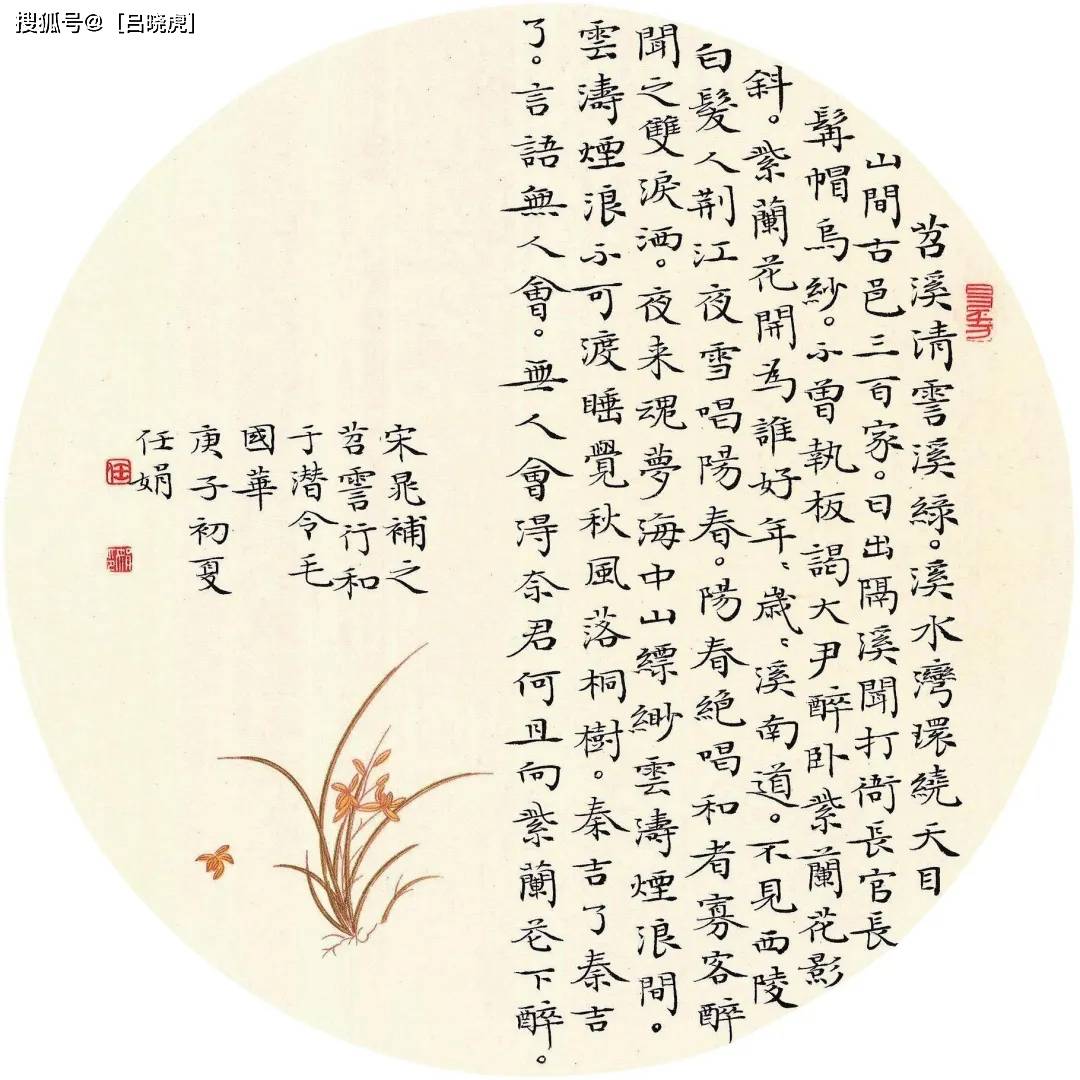 搜狐号@［吕晓虎］
苕溪清霅溪綠。溪水灣環繞天目
山間古邑三百家。日出隔溪聞打衙長官長
髯帽烏紗。不曾執板謁大尹醉卧紫蘭花影
斜。紫蘭花開為誰好年〻歲〻溪南道。不見西陵
白髮人荆江夜雪唱陽春。陽春絕唱和者寡客醉
聞之雙淚洒。夜来魂夢海中山縹緲雲濤煙浪間。
雲濤煙浪不可渡睡覺秋風落桐樹。秦吉了秦吉
了。言語無人會。無人會得奈君何且向紫蘭花下醉。
宋晁補之
苕霅行和
于潛令毛
國華
庚子初夏
任娟
任